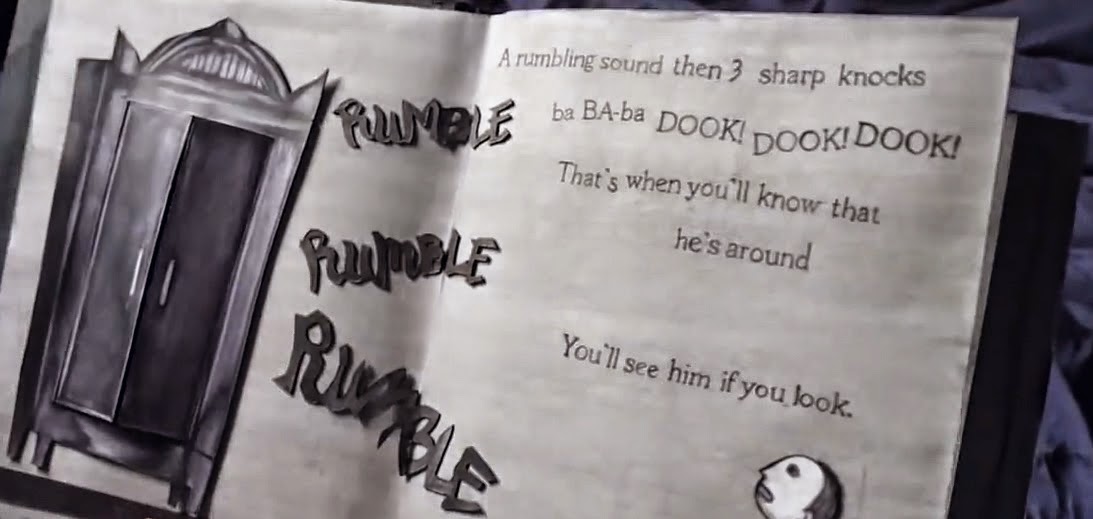 RUMBLE
RUMBLE
RUMBLE
A rumbling sound then 3 sharp knocks
ba BA-ba DOOK! DOOK! DOOK!
That's when you'll know that
he's around
You'll see him if you look.